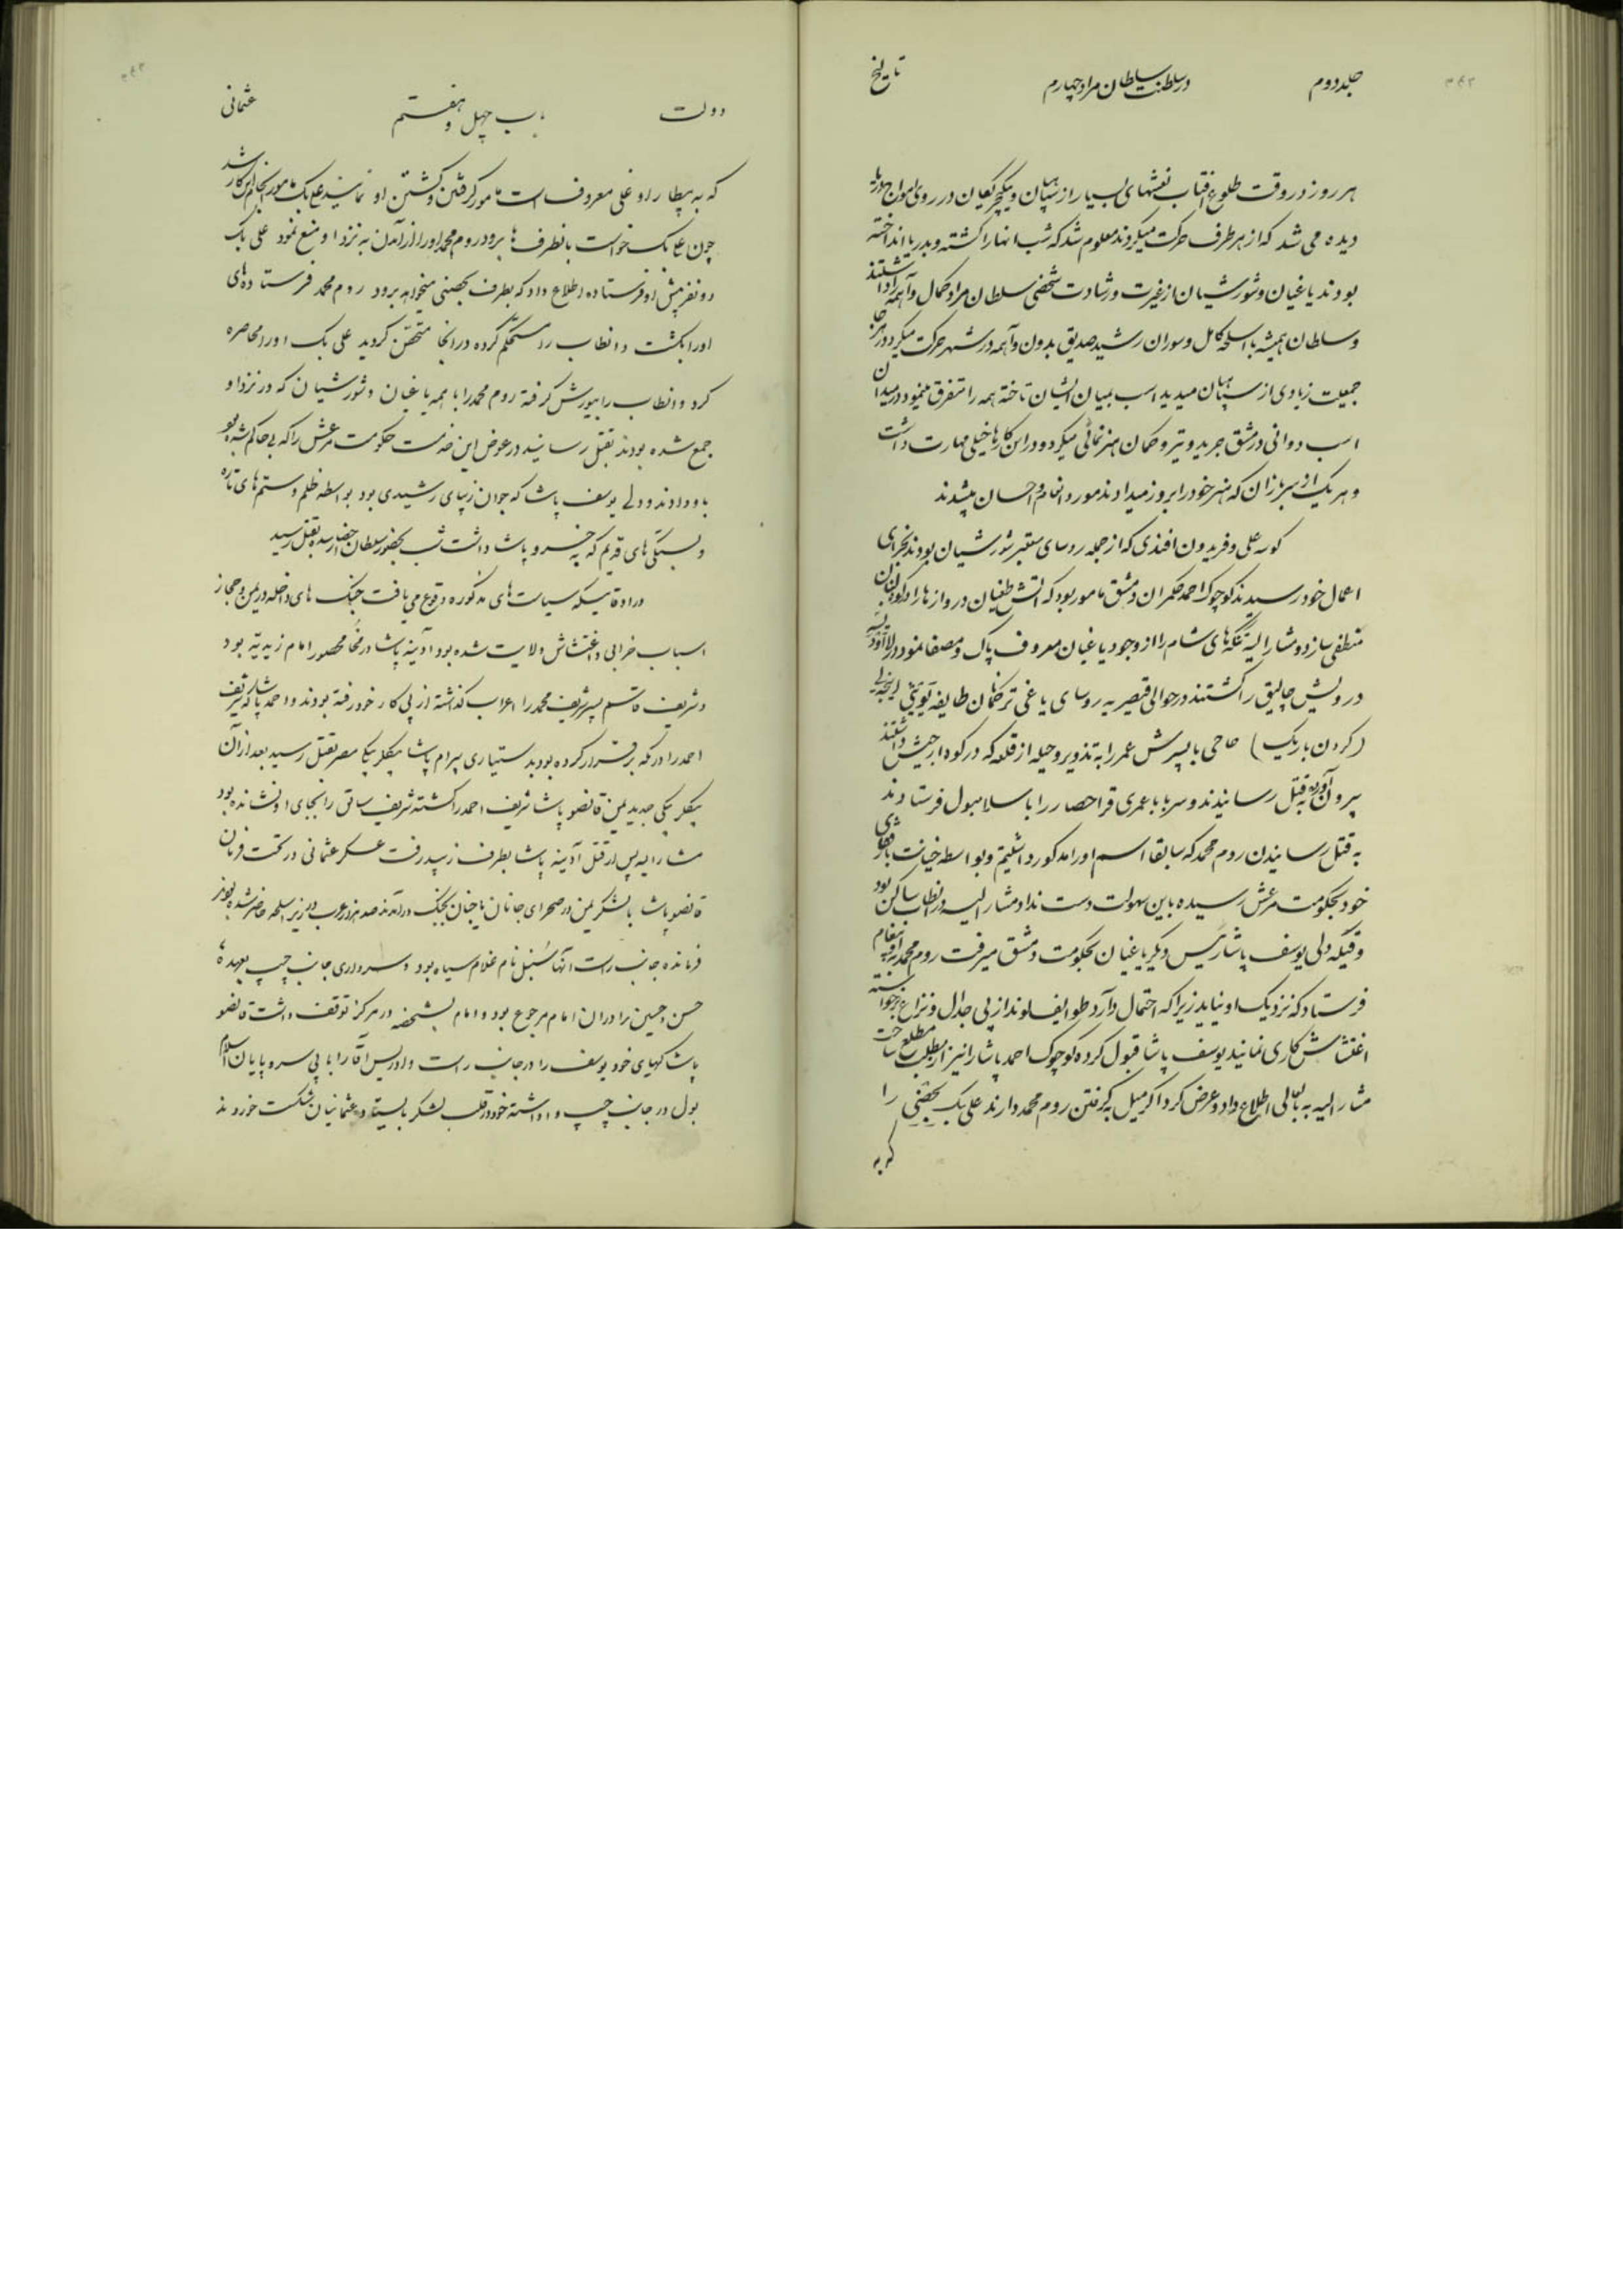 جلد دوم در سلطنت سلطان مراد چهارم تاریخ
هر روز در وقت طلوع افتاب نعشهای بسیار از سپاهیان و ینگچریکان در روی امواج دریا
دیده می شد که از هر طرف حرکت میکردند معلوم شد که شب انها را کشته و بدریا انداخته
بودند یاغیان و شورشیان از غیرت و رشادت شخصی سلطان مراد کمال واهمه را داشتند
و سلطان همیشه با اسلحه کامل و سوران رشید صدیق بدون واهمه در شهر حرکت میکرد و در هر جا
جمعیت زیادی از سپاهیان میدید اسب بمیان ایشان تاخته همه را متفرق مینمود و در میدان
اسب دوانی در مشق جرید و تیر و کمان هنر نمائی میکرد و در این کارها خیلی مهارت داشت
و هر یک از سربازان که هنر خود را بروز میدادند مورد انعام و احسان میشدند
کوسه علی و فریدون افندی که از جمله روسای معتبر شورشیان بودند بجزای
اعمال خود رسیدند کوچوک احمد حکمران دمشق مامور بود که اتش طغیان دروازها را در کوه لبنان
منطفی سازد و مشار الیه تنگه های شام را از وجود یاغیان معروف پاک و مصفا نمود در لارنده
درویش چالیق را کشتند در حوالی قیصریه روسای یاغی ترکمانان طایفه
(کردن باریک) حاجی با پسرش عمر را به تذویر و حیله از قلعه که در کوه ارجیش داشتند
بیرون آورده به قتل رسانیدند و سر بابا عمری قراحصار را با سلامبول فرستادند
به قتل رسانیدن روم محمد که سابقا اسم او را مذکور داشتیم و بواسطه خیانت با
خود بحکومت مرعش رسیده باین سهولت دست نداد مشار الیه در انطاب ساکن بود
وقتیکه دلی یوسف پاشا رئیس دیگر یاغیان بحکومت دمشق میرفت روم محمد به او پیغام
فرستاد که نزدیک او نیاید زیرا که احتمال دارد طوایف لوند از پی جدال و نزاع برخواسته
اغتشاش کاری نمایند یوسف پاشا قبول کرده کوچوک احمد پاشا را نیز از مطلب مطلع ساخت
مشار الیه به بابعالی اطلاع داد و عرض کرد اگر میل بگرفتن روم محمد دارند علی بک بحصنی را
که به
دولت باب چهل و هفتم عثمانی
که به بیطار اوغلی معروف است مامور گرفتن و کشتن او نمایند علی بک مامور انجام این کار شد
چون علی بک خواست بانطرف ها برود روم محمد او را از آمدن به نزد او منع نمود علی بک
دو نفر پیش او فرستاده اطلاع داد که بطرف بحصنی میخواهد برود روم محمد فرستاده های
او را بکشت و انطاب را مستحکم کرده در انجا متحصن گردید علی بک او را محاصره
کرد و انطاب را بیورش گرفته روم محمد را با همه یاغیان و شورشیان که در نزد او
جمع شده بودند بقتل رسانید در عوض این خدمت حکومت مرعش را که بی حاکم شده بود
باو دادند و دلی یوسف پاشا که جوان زیبای رشیدی بود بواسطه ظلم و ستم های تازه
و بستگی های قدیم که به خسرو پاشا داشت شب بحضور سلطان احضار شده بقتل رسید
در اوقاتیکه سیاست های مذکوره وقوع می یافت جنگ های داخله در یمن و حجاز
اسباب خرابی و اغتشاش ولایت شده بود آدینه پاشا در مخا محصور امام زیدیه بود
و شریف قاسم پسر شریف محمد را اعراب گذاشته از پی کار خود رفته بودند و احمد پاشا که شریف
احمد را در مکه برقرار کرده بود بدستیاری بیرام پاشا بیگلر بیگی مصر بقتل رسید بعد از آن
بیگلر بیگی جدید یمن قانصو پاشا شریف احمد را کشته شریف سابق را بجای او نشانده بود
مشار الیه پس از قتل آدینه پاشا بطرف زبید رفت عسکر عثمانی در تحت فرمان
قانصو پاشا با لشکر یمن در صحرای جانان با جنان بجنگ درآمدند صد هزار عرب در زیر اسلحه حاضر شده بودند
فرمانده جانب راست آنها سنبل نام غلام سیاه بود و سرداری جانب چپ بعهده
حسن و حسین برادران امام مرجوع بود و امام بشخصه در مرکز توقف داشت قانصو
پاشا کهیای خود یوسف را در جانب راست و ادریس آقا را با پی سر و پایان اسلام
بول در جانب چپ واداشته خود در قلب لشکر بایستاد و عثمانیان شکست خوردند